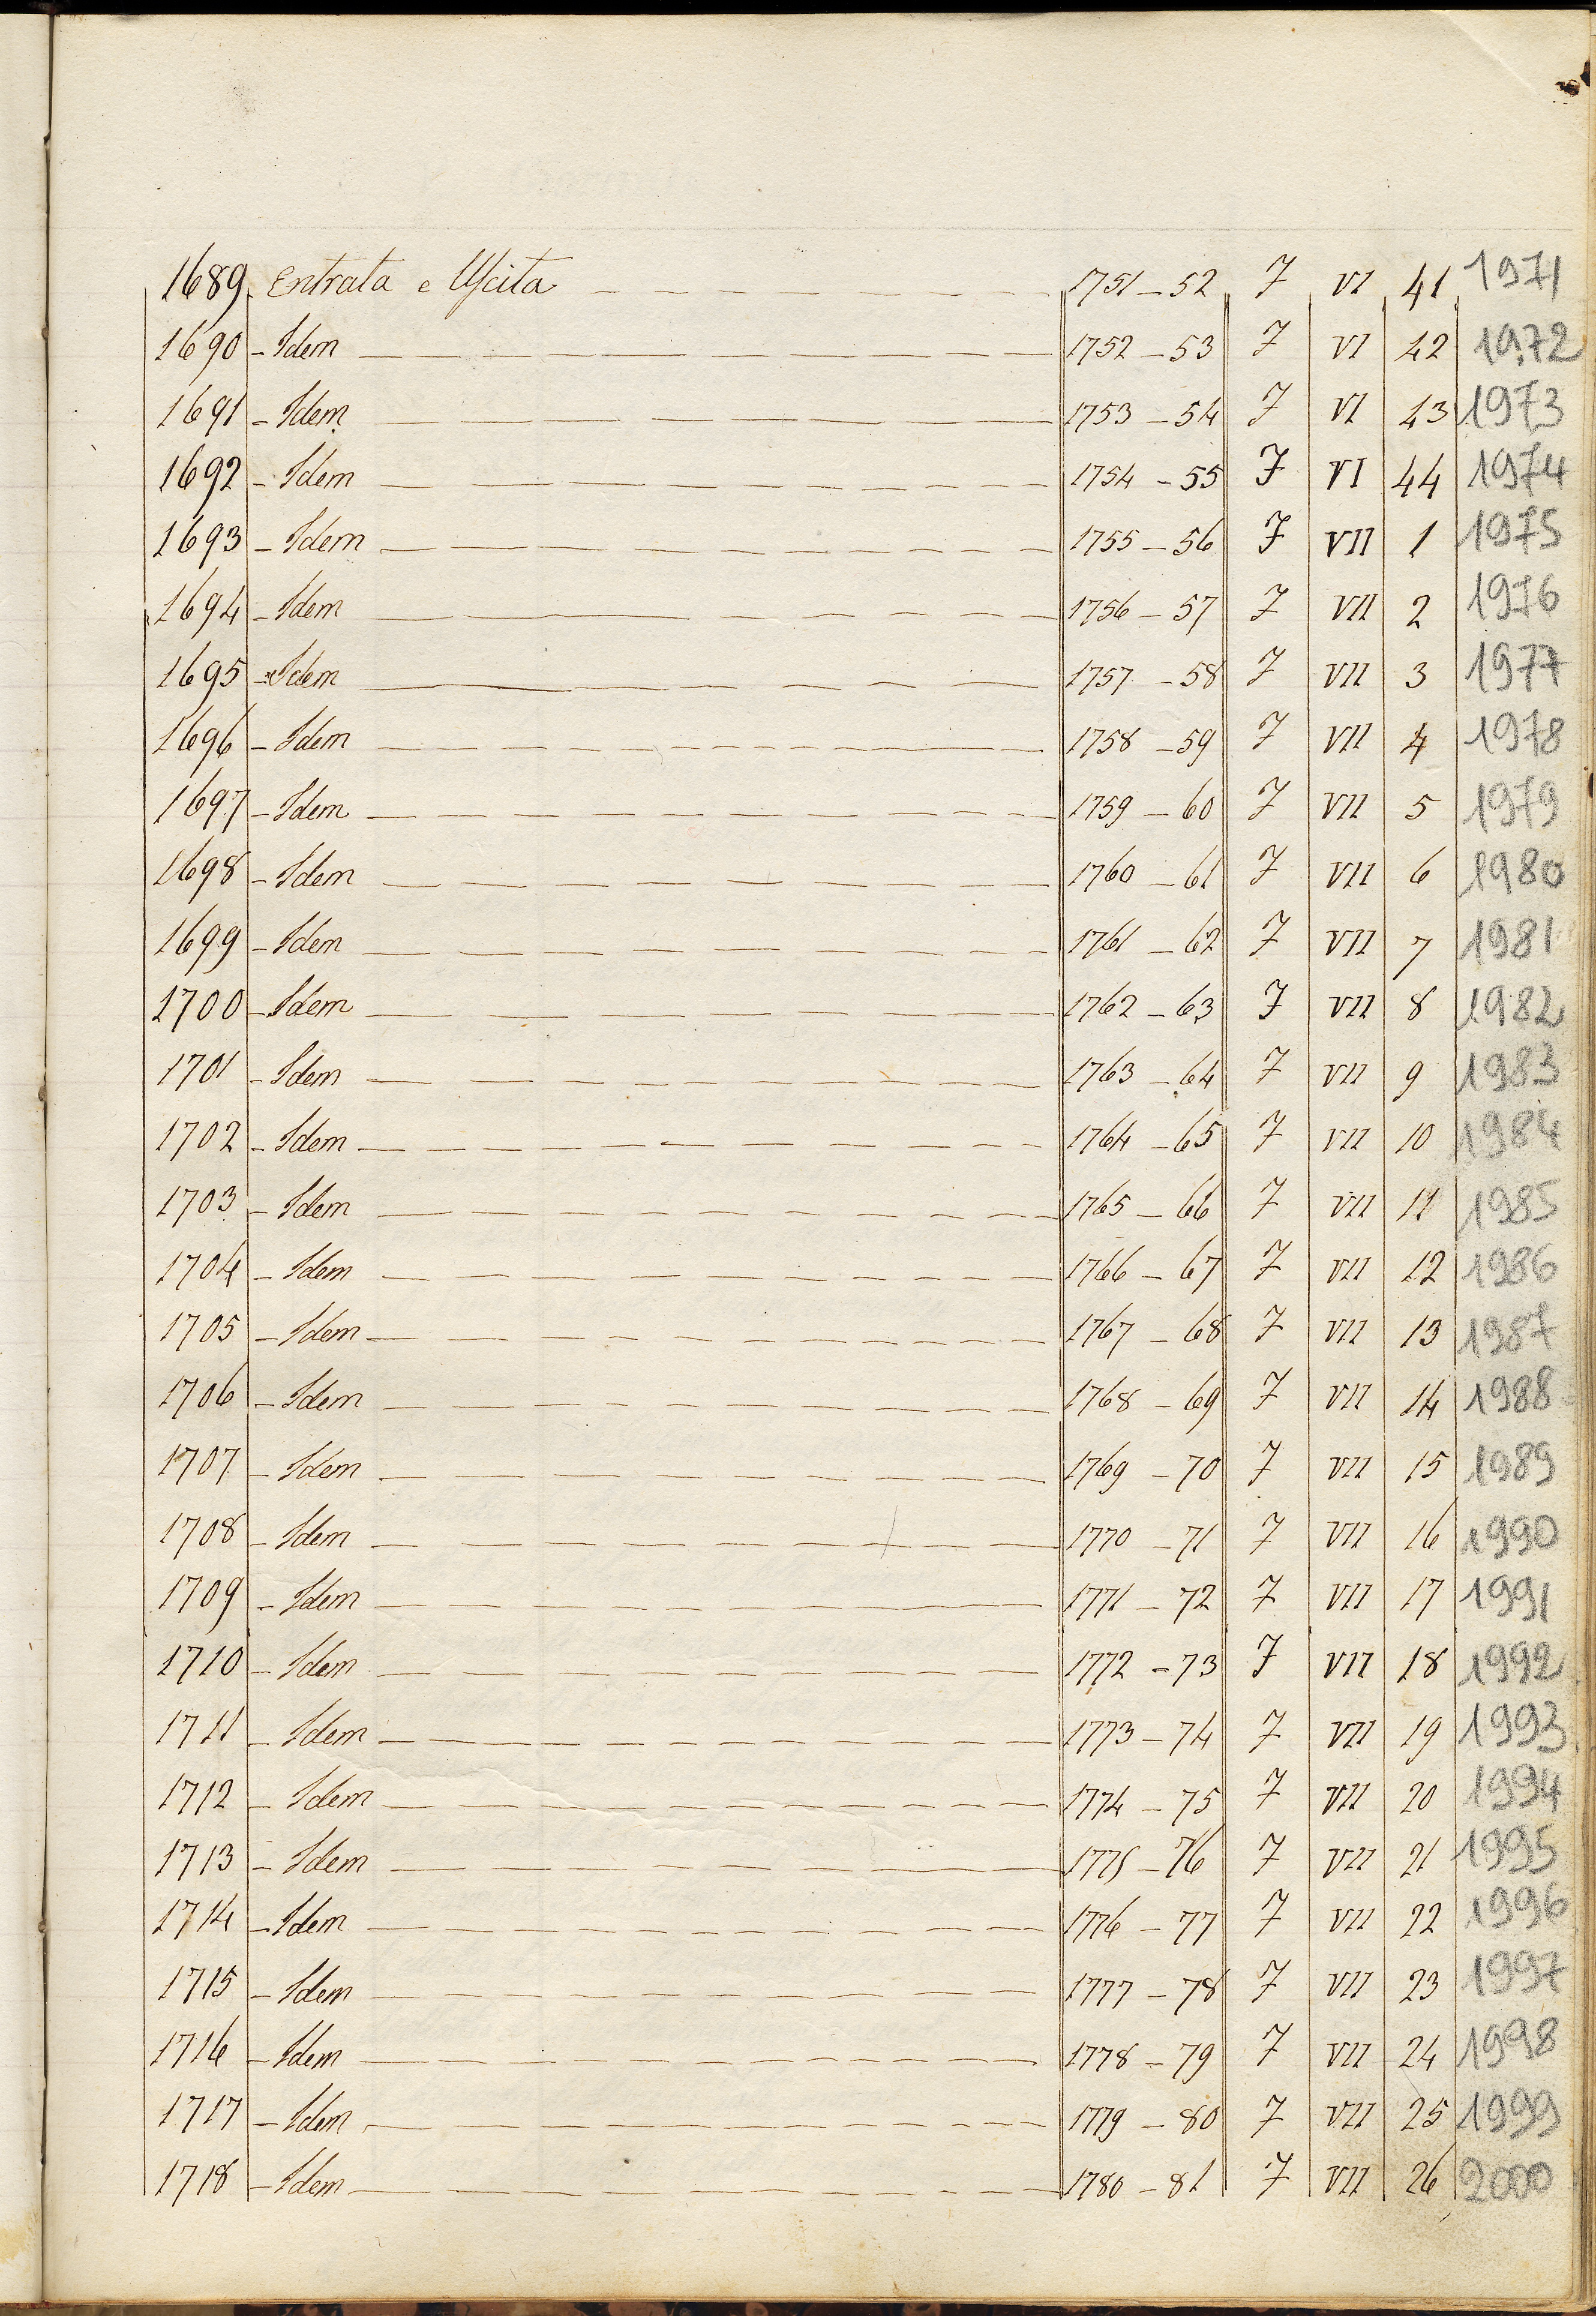 1689 Entrata e Uscita 1751-52 7 VI 41 1971
1690 - Idem 1752-53 7 VI 42 1972
1691 - Idem 1753-54 7 VI 43 1973
1692 - Idem 1754-55 7 VI 44 1974
1693 - Idem 1755-56 7 VII 1 1975
1694 - Idem 1756-57 7 VII 2 1976
1695 - Idem 1757-58 7 VII 3 1977
1696 - Idem 1758-59 7 VII 4 1978
1697 - Idem 1759-60 7 VII 5 1979
1698 - Idem 1760-61 7 VII 6 1980
1699 - Idem 1761-62 7 VII 7 1981
1700 - Idem 1762-63 7 VII 8 1982
1701 - Idem 1763-64 7 VII 9 1983
1702 - Idem 1764-65 7 VII 10 1984
1703 - Idem 1765-66 7 VII 11 1985
1704 - Idem 1766-67 7 VII 12 1986
1705 - Idem 1767-68 7 VII 13 1987
1706 - Idem 1768-69 7 VII 14 1988
1707 - Idem 1769-70 7 VII 15 1989
1708 - Idem 1770-71 7 VII 16 1990
1709 - Idem 1771-72 7 VII 17 1991
1710 - Idem 1772-73 7 VII 18 1992
1711 - Idem 1773-74 7 VII 19 1993
1712 - Idem 1774-75 7 VII 20 1994
1713 - Idem 1775-76 7 VII 21 1995
1714 - Idem 1776-77 7 VII 22 1996
1715 - Idem 1777-78 7 VII 23 1997
1716 - Idem 1778-79 7 VII 24 1998
1717 - Idem 1779-80 7 VII 25 1999
1718 - Idem 1780-81 7 VII 26 2000